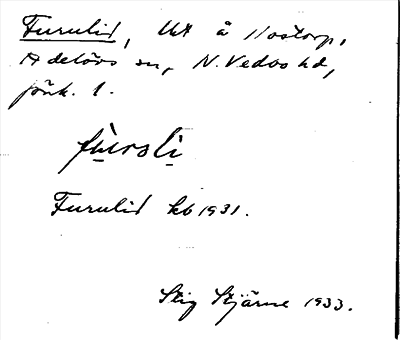 Furulid, lht å Nostorp,
Adelövs sn, N. Vedbo hd,
Jönk. l.
fù̱rali̱
Furulid kb 1931.
Stig Stjärne 1933.